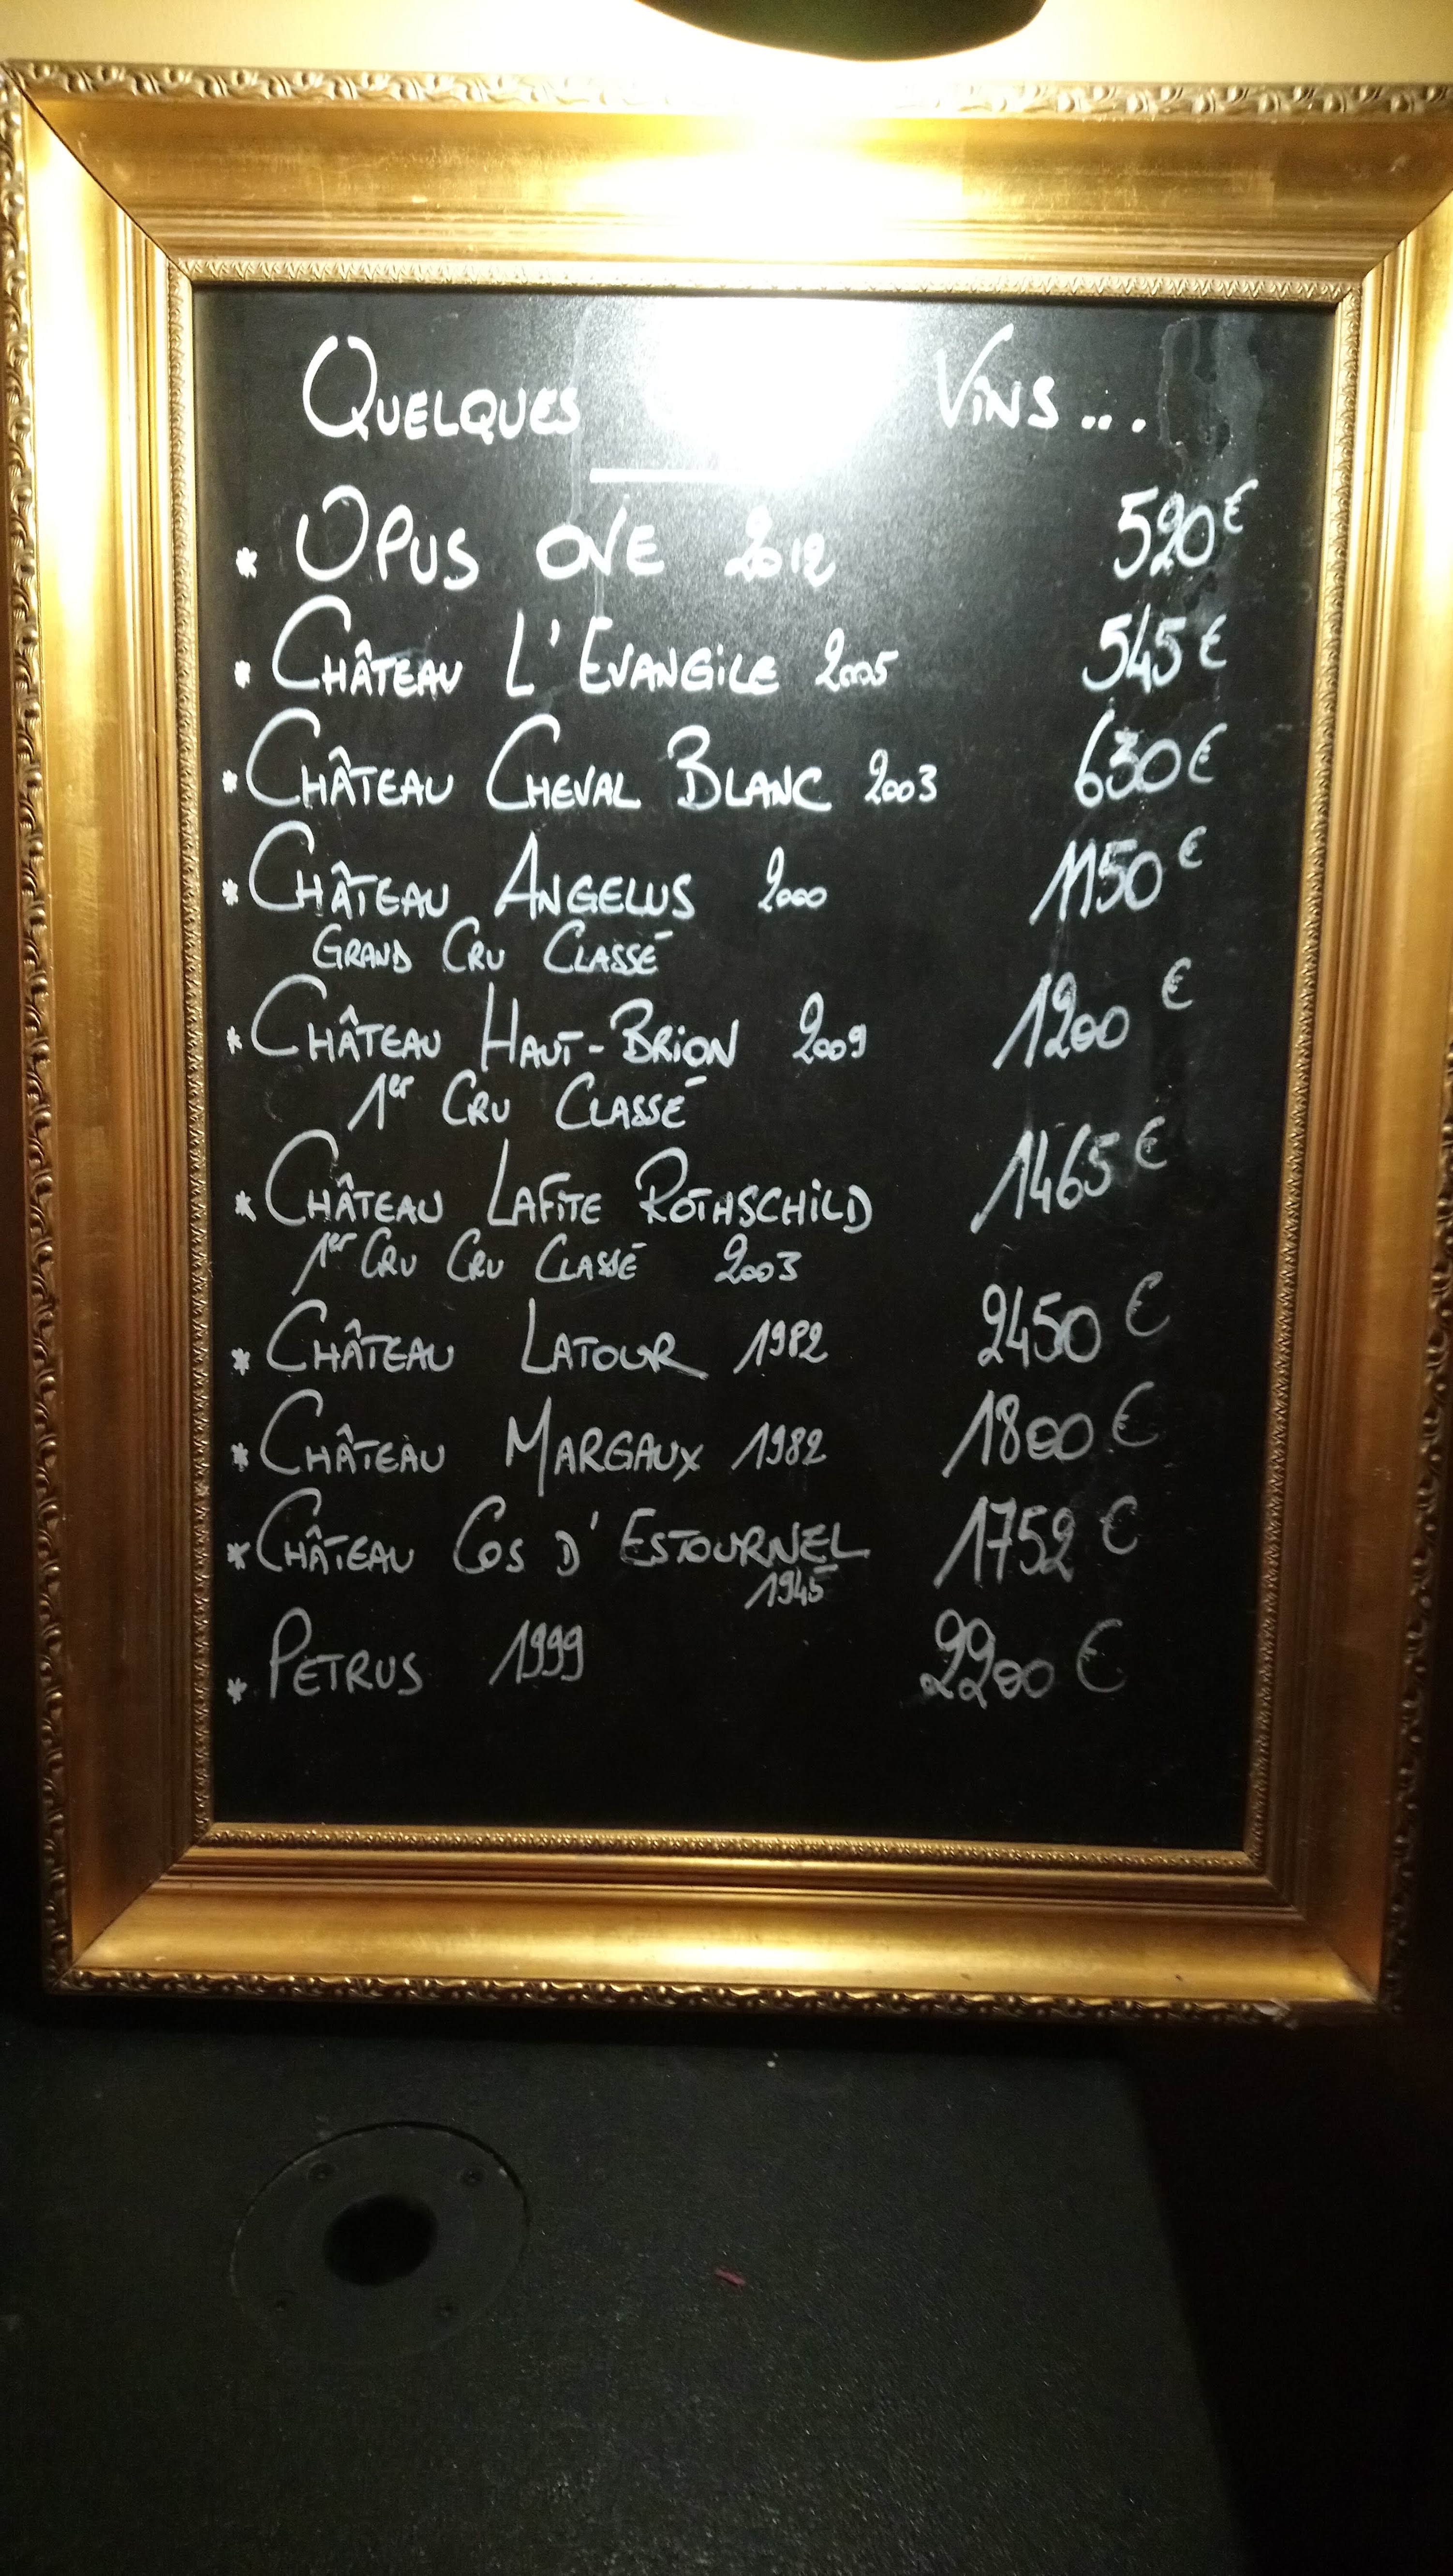 QUELQUES VINS...
* OPUS ONE 2012 520€
* CHÂTEAU L'EVANGILE 2005 545€
* CHÂTEAU CHEVAL BLANC 2003 630€
* CHÂTEAU ANGELUS 2000 1150€
GRAND CRU CLASSÉ
* CHÂTEAU HAUT-BRION 2009 1200€
1er CRU CLASSÉ
* CHÂTEAU LAFITE ROTHSCHILD 1465€
1er CRU CRU CLASSÉ 2003
* CHÂTEAU LATOUR 1982 2450€
* CHÂTEAU MARGAUX 1982 1800€
* CHÂTEAU COS D'ESTOURNEL 1752€
1945
* PETRUS 1999 2200€